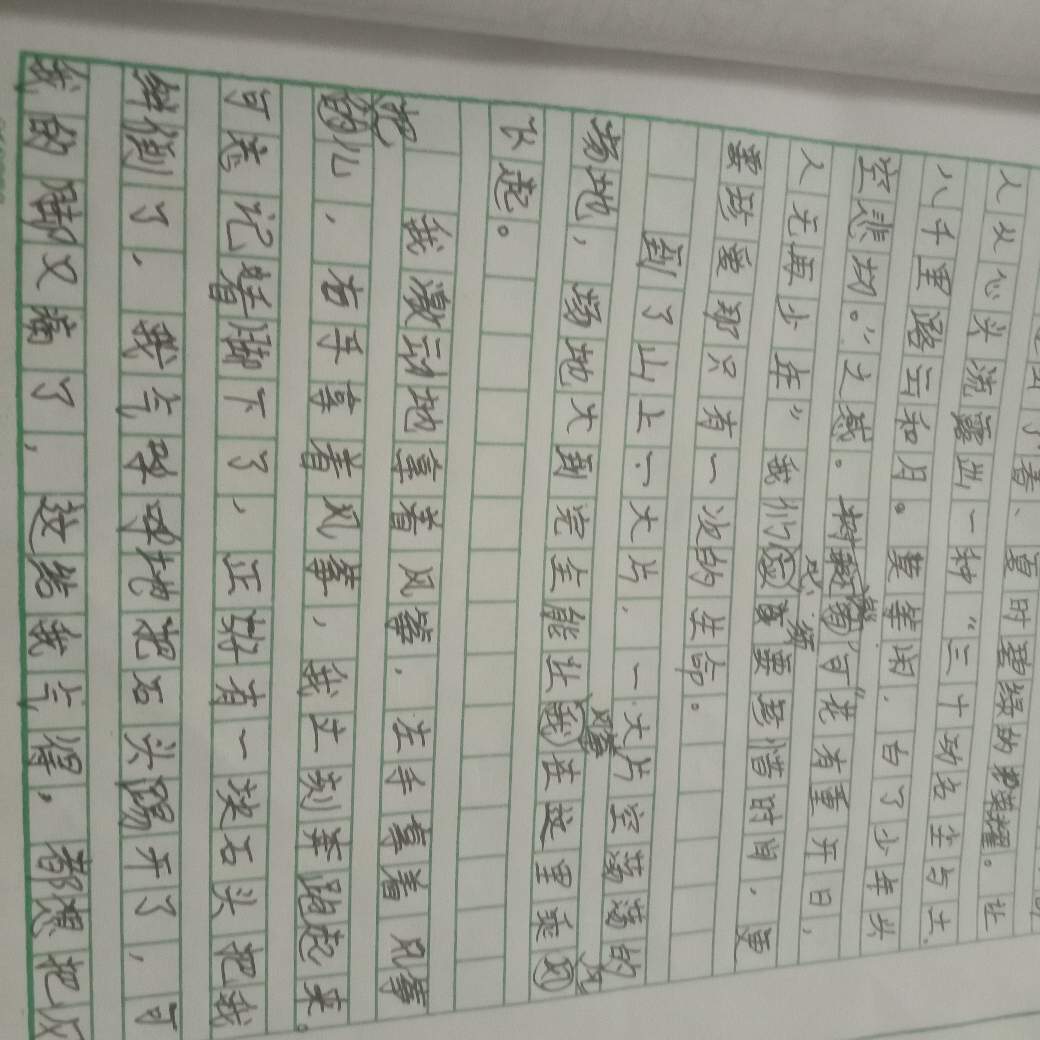 春、夏时碧绿的
人从心头流露出一种“三十功名尘与土
八千里路云和月。莫等闲，白了少年头
空悲切。”之感。可“花有重开日，
人无再少年”我们必须要惜时间，更
要珍爱那只有一次的生命。
到了山上，大片，一大片空荡荡的
场地，场地大到完全能让风筝在这里乘风
飞起。
我激动地拿着风筝，左手拿着风筝
把儿，右手拿着风筝，我立刻奔跑起来。
可忘记替脚下了，正好有一块石头把我
绊倒了，我气呼呼地把石头踢开了，可
我的脚又痛了，这给我气得，都想把